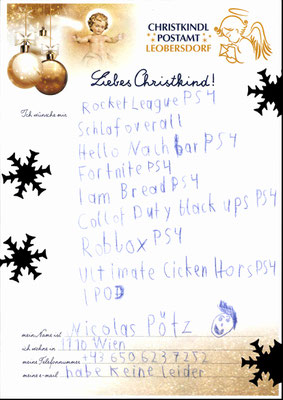 CHRISTKINDL
POSTAMT
LEOBERSDORF
Liebes Christkind!
Ich wünsche mir
Rocket League PS4
Schlafoverall
Hello Nachbar PS4
Fortnite PS4
I am Bread PS4
Callof Duty black ups PS4
Robbox PS4
Ultimate Cicken Hors PS4
IPOD
mein Name ist Nicolas Pötz
ich wohne in 1110 Wien
meine Telefonnummer +43 650 623 7252
meine e-mail habe keine leider